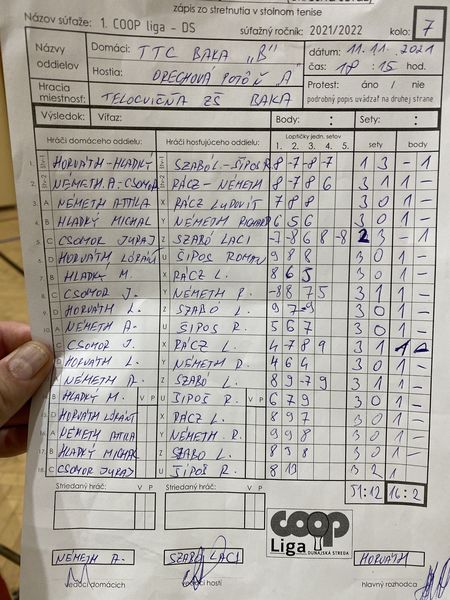 zápis zo stretnutia v stolnom tenise
Názov súťaže: 1. COOP liga - DS súťažný ročník: 2021/2022 kolo: 7
Názvy oddielov
Domáci: TTC BAKA "B"
Hostia: ORECHOVÁ POTÔŇ "A"
dátum: 11.11.2021
čas: 18 15 hod.
Hracia miestnosť: TELOCVIČŇA ZŠ BAKA
Protest: áno / nie
podrobný popis uvádzať na druhej strane
Výsledok: Víťaz: Body: : Sety: :
Hráči domáceho oddielu Hráči hosťujúceho oddielu Loptičky jedn. setov 1. 2. 3. 4. 5. sety body
1. HORVÁTH-HLADKÝ SZABÓ L.-ŠIPOS R 8 -7 -8 -7 1 3 - 1
2. NÉMETH A.-CSOMOR RÁCZ-NÉMETH 8 -7 8 6 3 1 1 -
3. A NÉMETH ATTILA X RÁCZ ĽUDOVÍT 7 8 8 3 0 1 -
4. B HLADKÝ MICHAL Y NÉMETH RICHARD 6 5 6 3 0 1 -
5. C CSOMOR JURAJ Z SZABÓ LACI -7 -8 6 8 -8 2 3 - 1
6. D HORVÁTH LÓRÁNT U ŠIPOS ROMAN 9 8 8 3 0 1 -
7. B HLADKÝ M. X RÁCZ L. 8 6 5 3 0 1 -
8. C CSOMOR J. Y NÉMETH R. -8 8 7 5 3 1 1 -
9. D HORVÁTH L. Z SZABÓ L. 9 7 9 3 0 1 -
10. A NÉMETH A. U ŠIPOS R. 5 6 7 3 0 1 -
C CSOMOR J. X RÁCZ L. 4 -7 8 9 3 1 1 -
D HORVÁTH L. Y NÉMETH R. 4 6 4 3 0 1 -
A NÉMETH A. Z SZABÓ L. 8 9 -7 9 3 1 1 -
B HLADKÝ M. V P U ŠIPOS R. V P 6 7 9 3 0 1 -
15. D HORVÁTH LÓRÁNT X RÁCZ L. 8 9 7 3 0 1 -
16. A NÉMETH ATTILA Y NÉMETH R. 9 9 8 3 0 1 -
17. B HLADKÝ MICHAL Z SZABÓ L. 8 3 8 3 0 1 -
18. C CSOMOR JURAJ U ŠIPOS R. 8 13 3 2 1
51:12 16:2
Striedaný hráč: V P Striedaný hráč: V P
COOP
Liga DUNAJSKÁ STREDA
NÉMETH A. SZABÓ LACI HORVÁTH
vedúci domácich vedúci hostí hlavný rozhodca